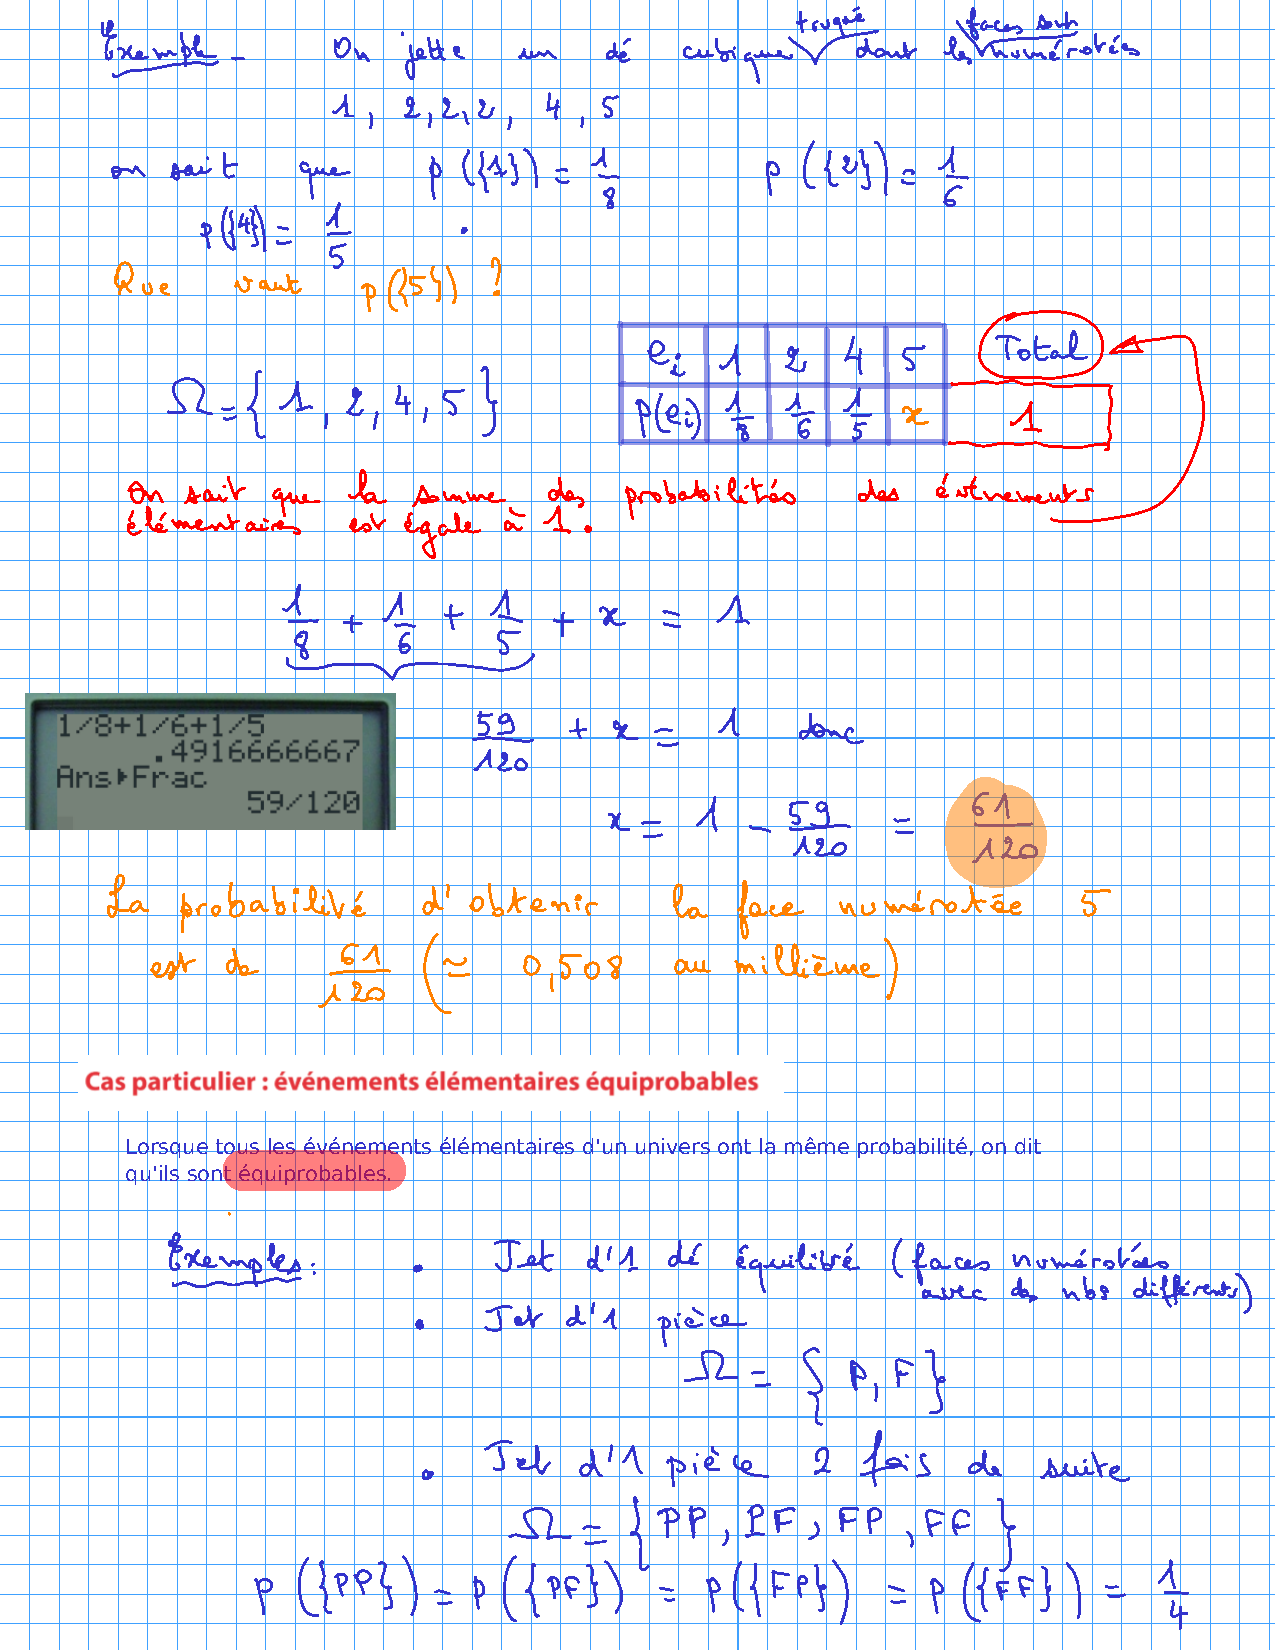 Exemple - On jette un dé cubique truqué dont les faces sont numérotées
1, 2, 2, 2, 4, 5
on sait que p({1}) = 1/8 p({2}) = 1/6
p({4}) = 1/5 .
Que vaut p({5}) ?
Ω = {1, 2, 4, 5}
ei 1 2 4 5 Total
p(ei) 1/8 1/6 1/5 x 1
On sait que la somme des probabilités des événements
élémentaires est égale à 1.
1/8 + 1/6 + 1/5 + x = 1
1/8+1/6+1/5
.4916666667
Ans▸Frac
59/120
59/120 + x = 1 donc
x = 1 - 59/120 = 61/120
La probabilité d'obtenir la face numérotée 5
est de 61/120 (≃ 0,508 au millième)
Cas particulier : événements élémentaires équiprobables
Lorsque tous les événements élémentaires d'un univers ont la même probabilité, on dit
qu'ils sont équiprobables.
Exemples : • Jet d'1 dé équilibré (faces numérotées
avec des nbs différents)
• Jet d'1 pièce
Ω = {P, F}
• Jet d'1 pièce 2 fois de suite
Ω = {PP, PF, FP, FF}
p({PP}) = p({PF}) = p({FP}) = p({FF}) = 1/4